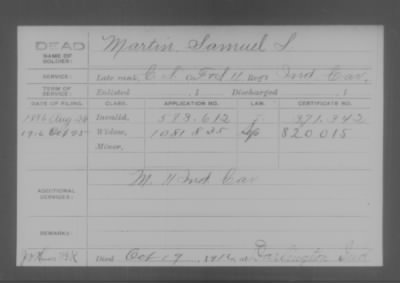 DEAD
NAME OF SOLDIER: Martin Samuel S
SERVICE: Late rank, Co. F & M 11 Reg't Ind Cav.
TERM OF SERVICE: Enlisted , 1 Discharged , 1
DATE OF FILING. CLASS. APPLICATION NO. LAW. CERTIFICATE NO.
1886 Aug Invalid, 573.612 371.342
1916 Oct 25 Widow, 1081.835 820015
Minor,
ADDITIONAL SERVICES: M. 11 Ind Cav
REMARKS:
Died Oct 19, 1916, at Darlington Ind